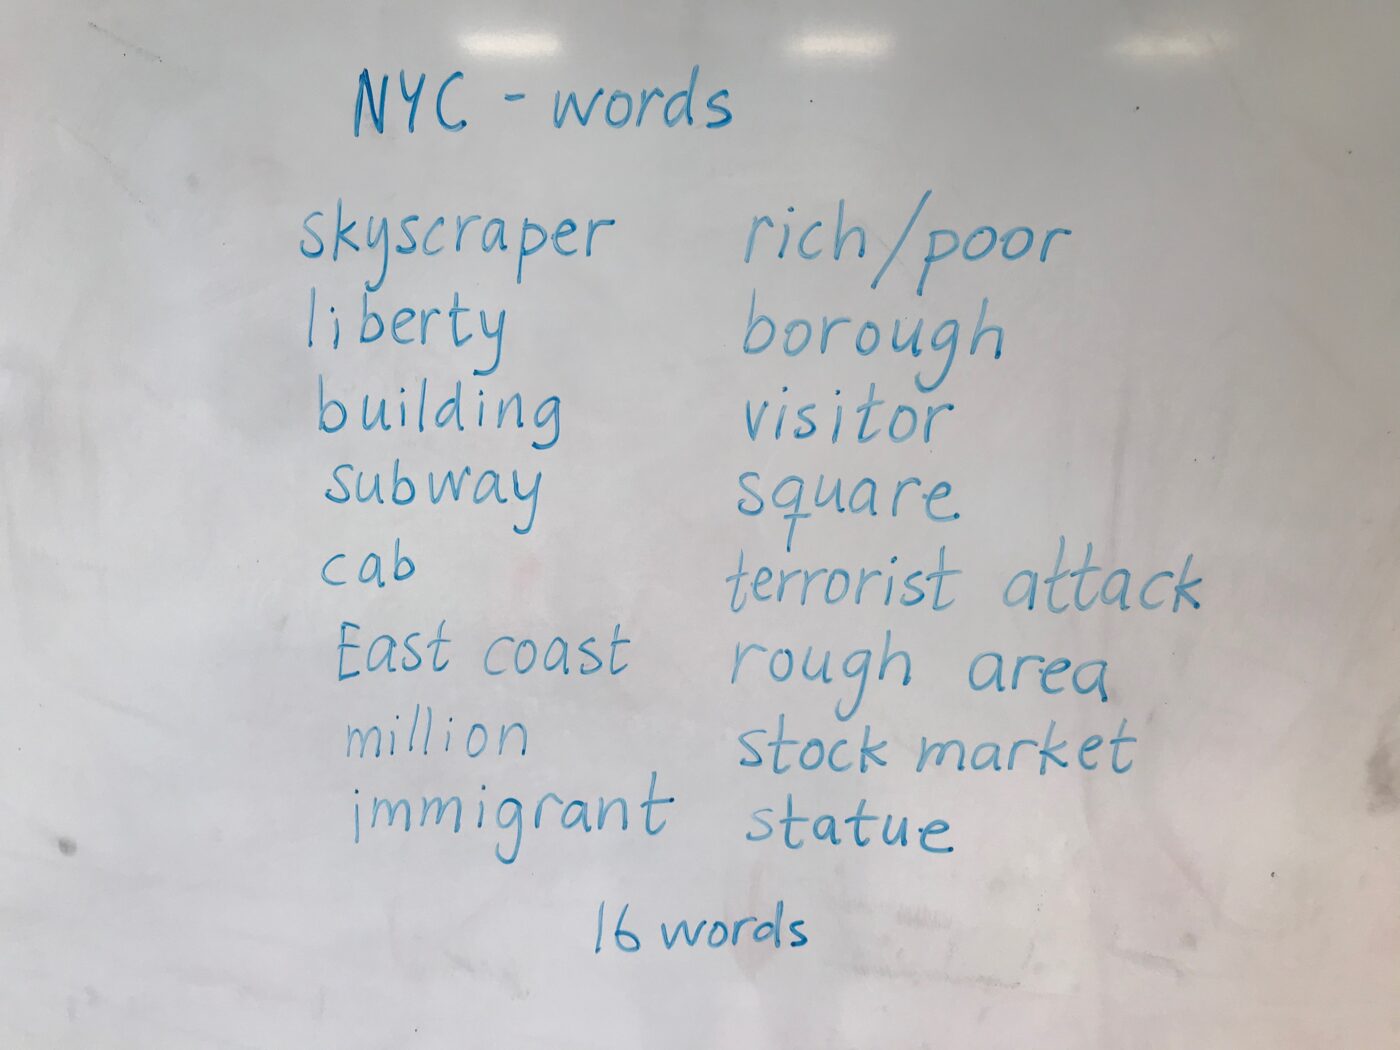 NYC - words
skyscraper
liberty
building
subway
cab
East coast
million
immigrant
rich/poor
borough
visitor
square
terrorist attack
rough area
stock market
statue
16 words